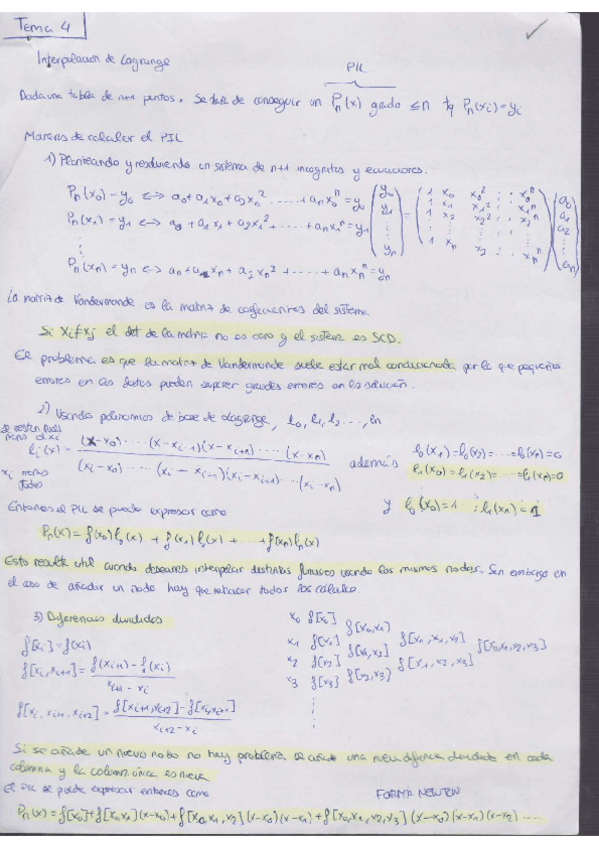 Tema 4
Interpolacion de Lagrange
PIL
Dada una tabla de n+1 puntos. Se trata de conseguir un Pn(x) grado ≤n tq Pn(xi)=yi
Maneras de calcular el PIL
1) Planteando y resolviendo un sistema de n+1 incognitas y ecuaciones.
Pn(x0)=y0 ⟺ a0+a1x0+a2x0².....+anx0ⁿ=y0
Pn(x1)=y1 ⟺ a0+a1x1+a2x1²....+anx1ⁿ=y1
⋮
Pn(xn)=yn ⟺ an+a1xn+a2xn²+.....+anxnⁿ=yn
(y0 y1 ⋮ yn) = (1 x0 x0² .. x0ⁿ 1 x1 x1² .. x1ⁿ 1 x2 x2² .. x2ⁿ ⋮ 1 xn xn² .. xnⁿ) (a0 a1 a2 ⋮ an)
La matriz de Vandermonde es la matriz de coeficientes del sistema
Si xi≠xj el det de la matriz no es cero y el sistema es SCD.
El problema es que la matriz de Vandermonde suele estar mal condicionada por lo que pequeños
errores en los datos pueden suponer grandes errores en la solución.
2) Usando polinomios de base de Lagrange, l0, l1, l2...,ln
se restan todos
menos el xi
li(x)= (x-x0)....(x-xi-1)(x-xi+1).....(x-xn) / (xi-x0)....(xi-xi-1)(xi-xi+1)....(xi-xn)
xi menos
todos
además
l0(x1)=l0(x2)=....=l0(xn)=0
l1(x0)=l1(x2)=....=l1(xn)=0
y l0(x0)=1 ; ln(xn)=1
Entonces el PIL se puede expresar como
Pn(x)=f(x0)l0(x) + f(x1)l1(x)+.....+f(xn)ln(x)
Esto resulta util cuando deseamos interpolar distintas funciones usando los mismos nodos. Sin embargo en
el caso de añadir un nodo hay que rehacer todos los cálculos
3) Diferencias divididas
f[xi]=f(xi)
f[xi,xi+1]= f(xi+1)-f(xi) / xi+1-xi
f[xi,xi+1,xi+2]= f[xi+1,xi+2]-f[xi,xi+1] / xi+2-xi
x0 f[x0]
f[x0,x1]
x1 f[x1] f[x0,x1,x2]
f[x1,x2] f[x0,x1,x2,x3]
x2 f[x2] f[x1,x2,x3]
f[x2,x3]
x3 f[x3]
⋮
Si se añade un nuevo nodo no hay problema se añade una nueva diferencia dividida en cada
columna y la columna única es nueva
El PIL se puede expresar entonces como
FORMA NEWTON
Pn(x)=f[x0]+f[x0,x1](x-x0)+f[x0,x1,x2](x-x0)(x-x1)+f[x0,x1,x2,x3](x-x0)(x-x1)(x-x2).....